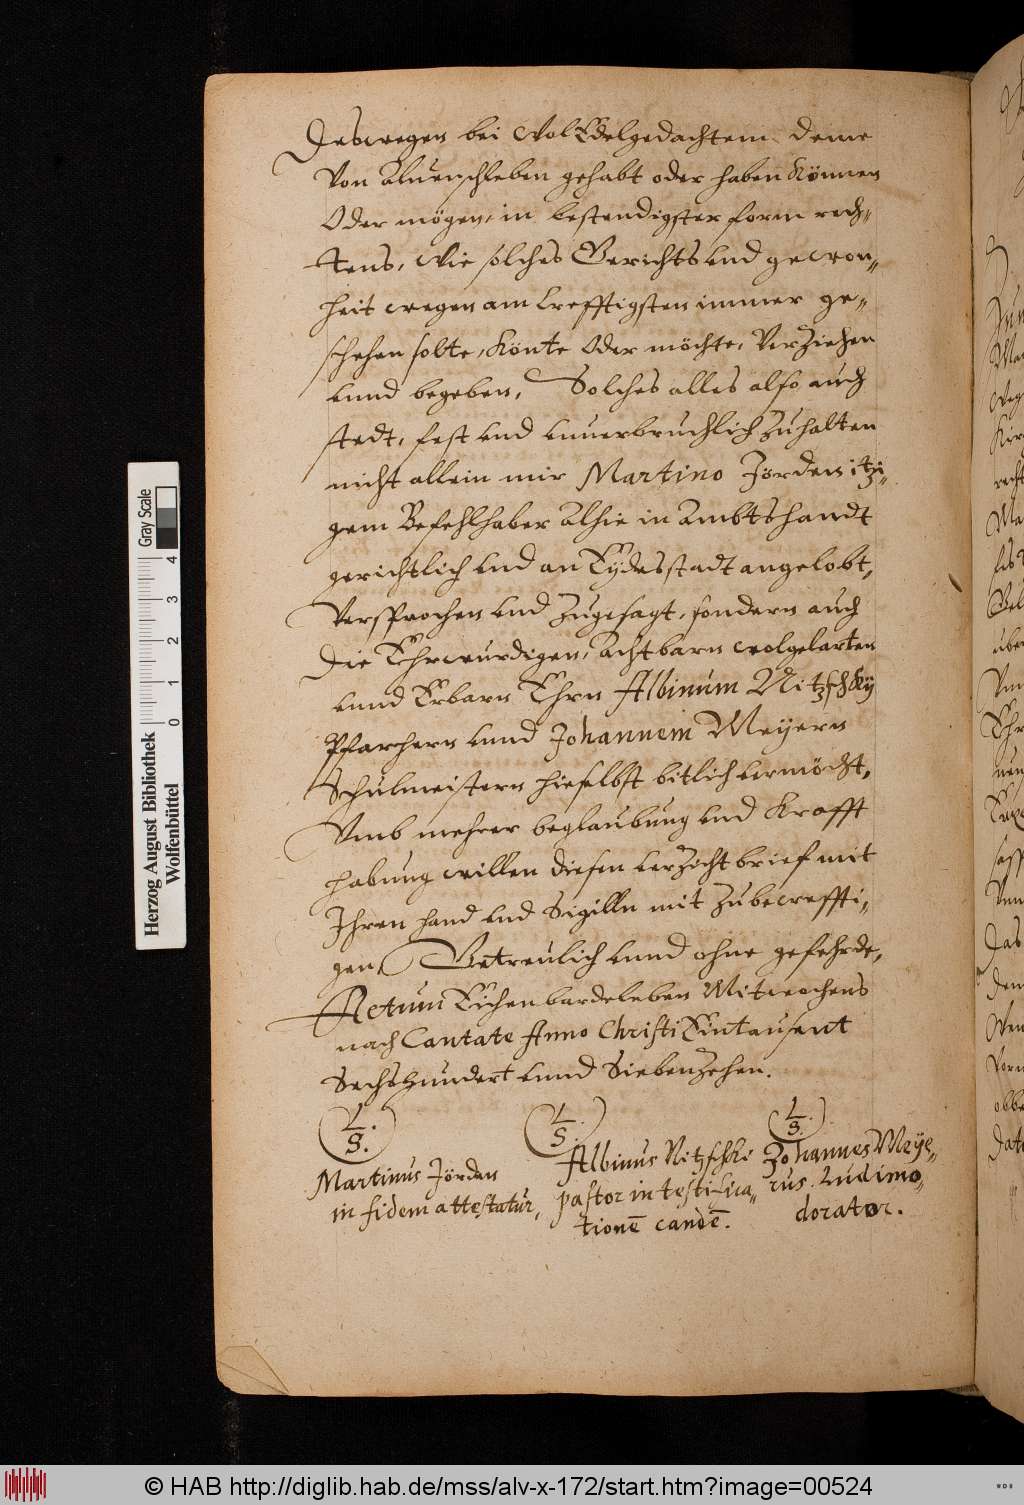 Deswegen bei Wol Edelgedachtem deme
Von Aluenschleben gehabt oder haben Können
Oder mögen, in bestendigster form rech„
tens, Wie solches Gerichts vnd gewon„
heit wegen am krefftigsten immer ge„
schehen solte, Könte Oder möchte, Verziehen
vnnd begeben, Solches alles also auch
stedt, fest vnd vnuerbruchlich zuhalten
nicht allein mir Martino Jörden itzi„
gem Befehlhaber Alhie in Ambtshandt
gerichtlich vnd an Eydesstadt angelobt,
Versprochen vnd zugesagt, sondern auch
Die Ehrwurdigen, Achtbarn wolgelarten
vnnd Erbarn Ehrn Albinum Nitzschky
Pfarhern vnnd Johannem Meyern
Schulmeistern hieselbst bitlich vermöcht,
Vmb mehrer beglaubung vnd Krafft
habung willen diesen verzicht brief mit
Ihren hand vnd Sigilln mit zubecreffti„
gen, Getreulich vnnd ohne gefehrde,
Actum Eichenbardeleben Mitwochens
nach Cantate Anno Christi Eintausent
Sechshundert vnnd Siebenzehen.
L. S. L. S. L. S.
Martinus Jörden
in fidem attestatur,
Albinus Nitzschki
pastor in testifica„
tionē eandē.
Johannes Meÿe„
rus. Ludimo„
derator.
Herzog August Bibliothek
Wolfenbüttel
0 1 2 3 4
Gray Scale
© HAB http://diglib.hab.de/mss/alv-x-172/start.htm?image=00524